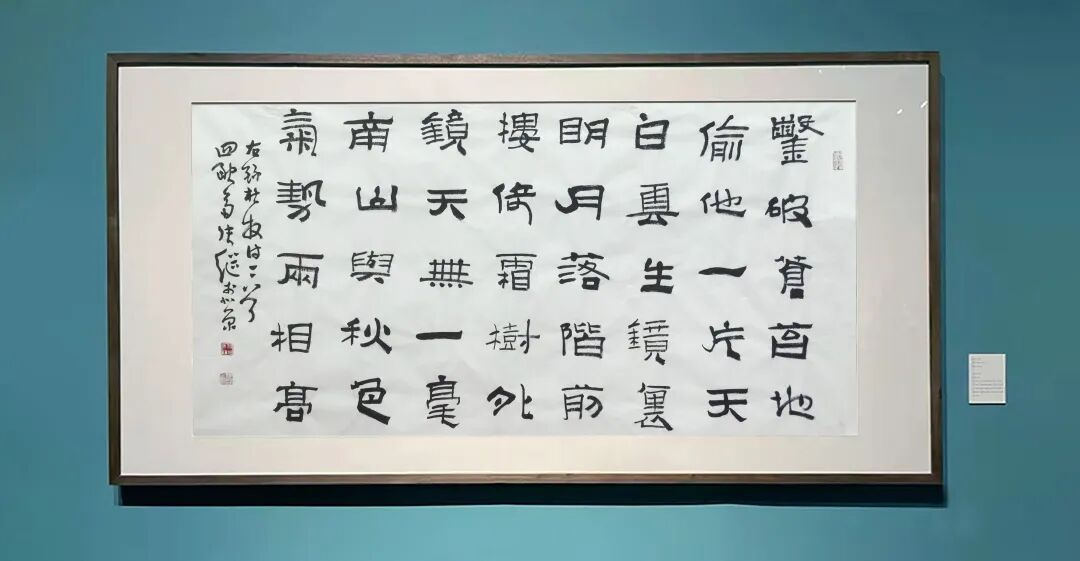 鑿破蒼苔地
偷他一片天
白雲生鏡裏
明月落階前
樓倚霜樹外
鏡天無一毫
南山與秋色
氣勢兩相高
右錄杜牧詩二首